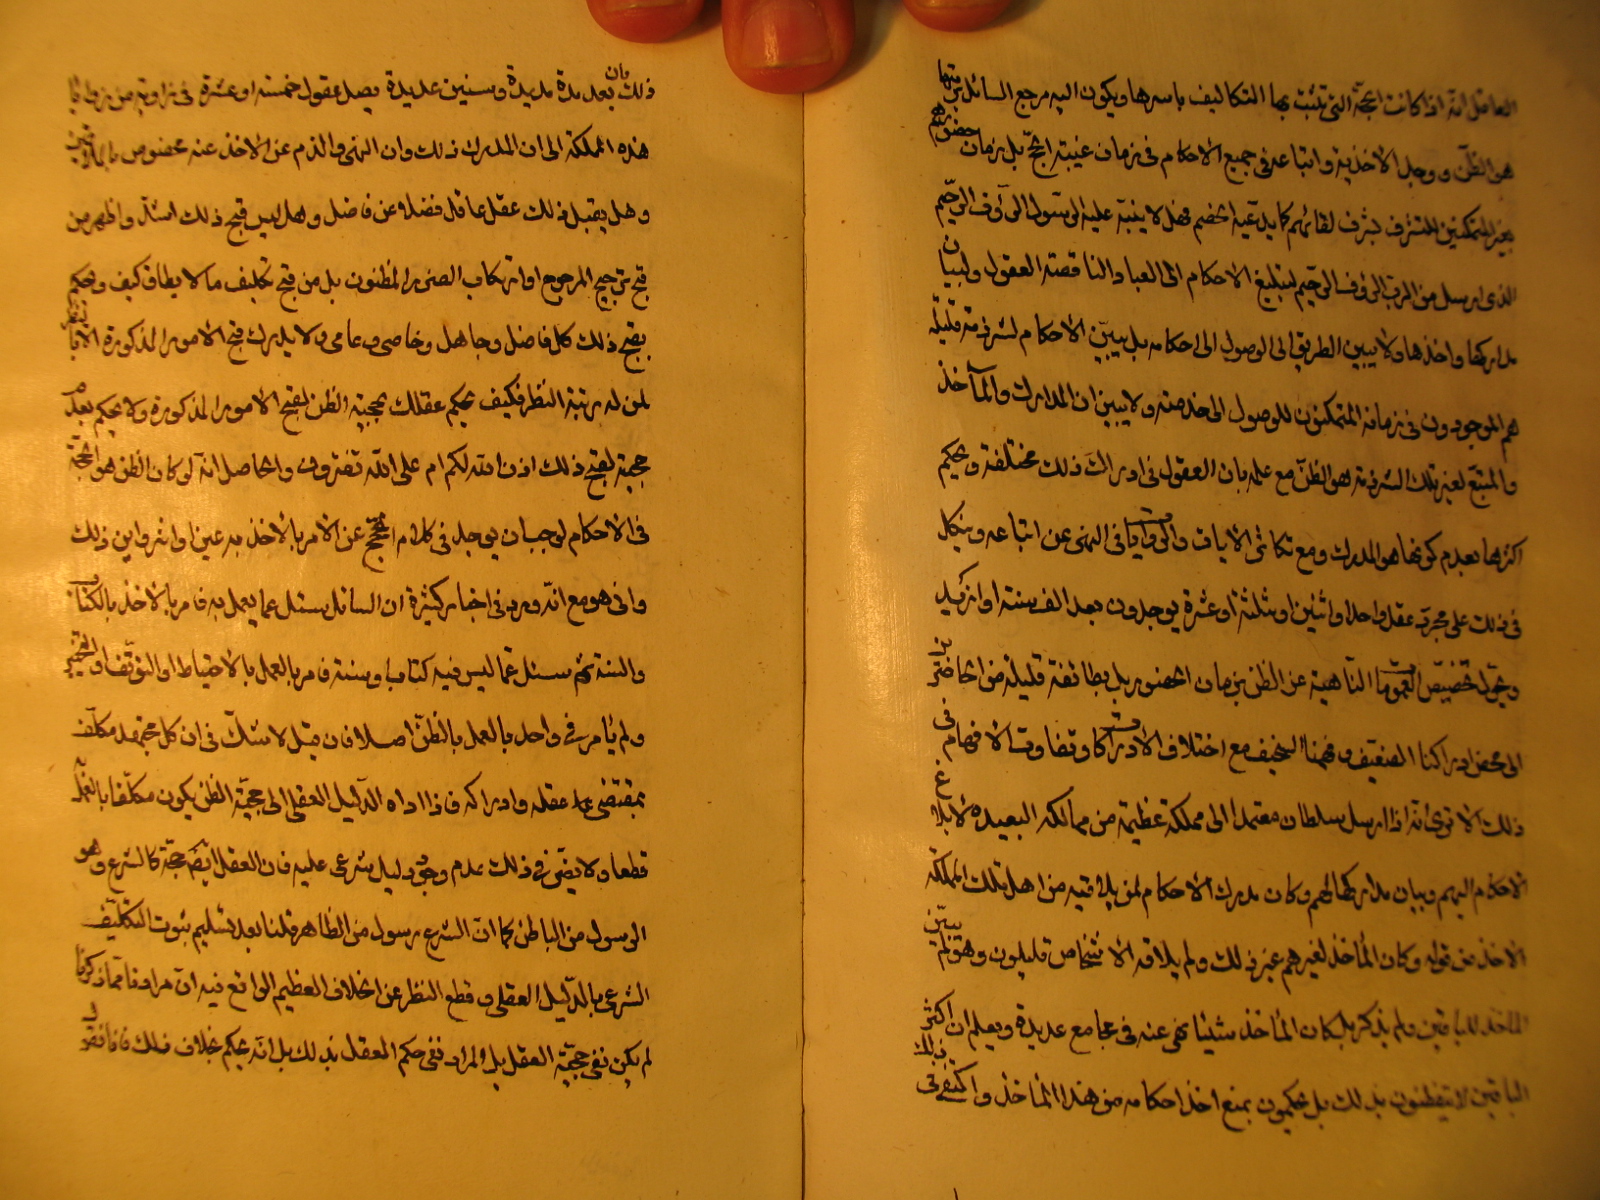 العاقل انه اذا كانت الحجّة التى تثبت بها التكاليف باسرها ويكون اليه مرجع السائل برمتها
هو الظنّ ووجب الاخذ به واتباعه فى جميع الاحكام فى زمان غيبة الحجج بل زمان حضورهم
لغير المتمكنين للتشرف بشرف لقائهم كما يدعيه الخصم فهل لا ينبّه عليه الرسول الرؤف الرحيم
الذى ارسل من الرب الرؤف الرحيم لتبليغ الاحكام الى العباد الناقصة العقول ولبيان
مداركها واخذها ولا يبين الطريق الى الوصول الى احكامه بل يبيّن الاحكام لشرذمة قليلة
هم الموجودون فى زمانه المتمكنون للوصول الى خدمته ولا يبين ان المدارك والمآخذ
والمتبع لغير تلك الشرذمة هو الظنّ مع علمه بان العقول فى ادراك ذلك مختلفة ويحكم
اكثرها بعدم كونها هو المدرك ومع تكاثر الايات والروايات فى النهى عن اتباعه ويتكل
فى ذلك على مجرد عقل واحد او اثنين او ثلثة او عشرة يوجدون بعد الف سنة او ازيد
ويحوّل تخصيص العمومات الناهية عن الظن بزمان الحضور بل بطائفة قليلة من الحاضرين
الى محض ادراكنا الضعيف وفهمنا السخيف مع اختلاف الادراكات وتفاوت الافهام فى
ذلك الا ترى انه اذا ارسل سلطان معتمدا الى مملكة عظيمة من ممالكه البعيدة لابلاغ
الاحكام اليهم وبيان مداركها لهم وكان مدرك الاحكام لمن يلاقيه من اهل تلك المملكة
الاخذ من قوله وكان المأخذ لغيرهم غير ذلك ولم يلاقه الا اشخاص قليلون وهو لم يبيّن
المأخذ للباقين ولم يذكر بل كان المأخذ شيئا نهى عنه فى مجامع عديدة ويعلم ان اكثر
الباقين لا يتفطنون بذلك بل يحكمون بمنع اخذ احكامه من هذا المأخذ واكتفى فى ذلك
ذلك بان بعد مدة مديدة وسنين عديدة يصل عقول خمسة او عشرة فى زاوية من زوايا
هذه المملكة الى ان المدرك ذلك وان النهى والذم عن الاخذ عنه مخصوص بالملاقين
وهل يقبل ذلك عقل عاقل فضلا عن فاضل وهل ليس قبح ذلك اشد واظهر من
قبح ترجيح المرجوح او ارتكاب الضرر المظنون بل من قبح تكليف ما لا يطاق كيف ويحكم
بقبح ذلك كل فاضل وجاهل وخاصى وعامى ولا يدرك قبح الامور المذكورة الا بالنظر
لمن له مرتبة النظر فكيف يحكم عقلك بحجية الظن لقبح الامور المذكورة ولا يحكم بعدم
حجيته لقبح ذلك اذن الله لكم ام على الله تفترون والحاصل انه لو كان الظن هو الحجّة
فى الاحكام لوجب ان يوجد فى كلام الحجج عن الامر بالاخذ به عين او اثر واين ذلك
وانى هو مع انّه ورد فى اخبار كثيرة ان السائل يسئل عما يعمل به فامر بالاخذ بالكتاب
والسنة ثم سئل عمّا ليس فيه كتاب وسنة فامر بالعمل بالاحتياط او التوقف او التخيير
ولم يأمر فى واحد بالعمل بالظن اصلا فان قيل لا شك فى ان كل مجتهد مكلف
بمقتضى عقله وادراكه فاذا اداه الدليل العقلى الى حجية الظن يكون مكلفا بالعمل
قطعا ولا يضر فى ذلك عدم وجود دليل شرعى عليه فان العقل ايضا حجّة كالشرع وهو
الرسول من الباطن كما انّ الشرع رسول من الظاهر قلنا بعد تسليم ثبوت التكليف
الشرعى بالدليل العقلى وقطع النظر عن الخلاف العظيم الواقع فيه انّ مرادنا مما ذكرنا
لم يكن نفى حجيّة العقل بل المراد نفى حكم العقل بذلك بل انّه يحكم بخلاف ذلك فانا نقول